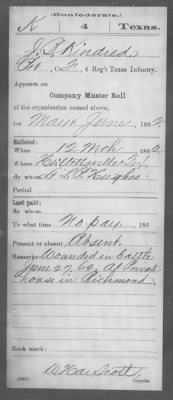 (Confederate.)
K 4 Texas.
J. P. Kindred
Pvt, Co. , 4 Reg't Texas Infantry.
Appears on
Company Muster Roll
of the organization named above,
for May & June, 1862.
Enlisted:
When 12 Mch, 1862.
Where Halletsville Tex
By whom Lt L. P. Hughes
Period
Last paid:
By whom
To what time No pay, 186
Present or absent Absent.
Remarks: Wounded in battle
June 27, 62. At Private
house in Richmond
Book mark:
Scott
(642) Copyist.